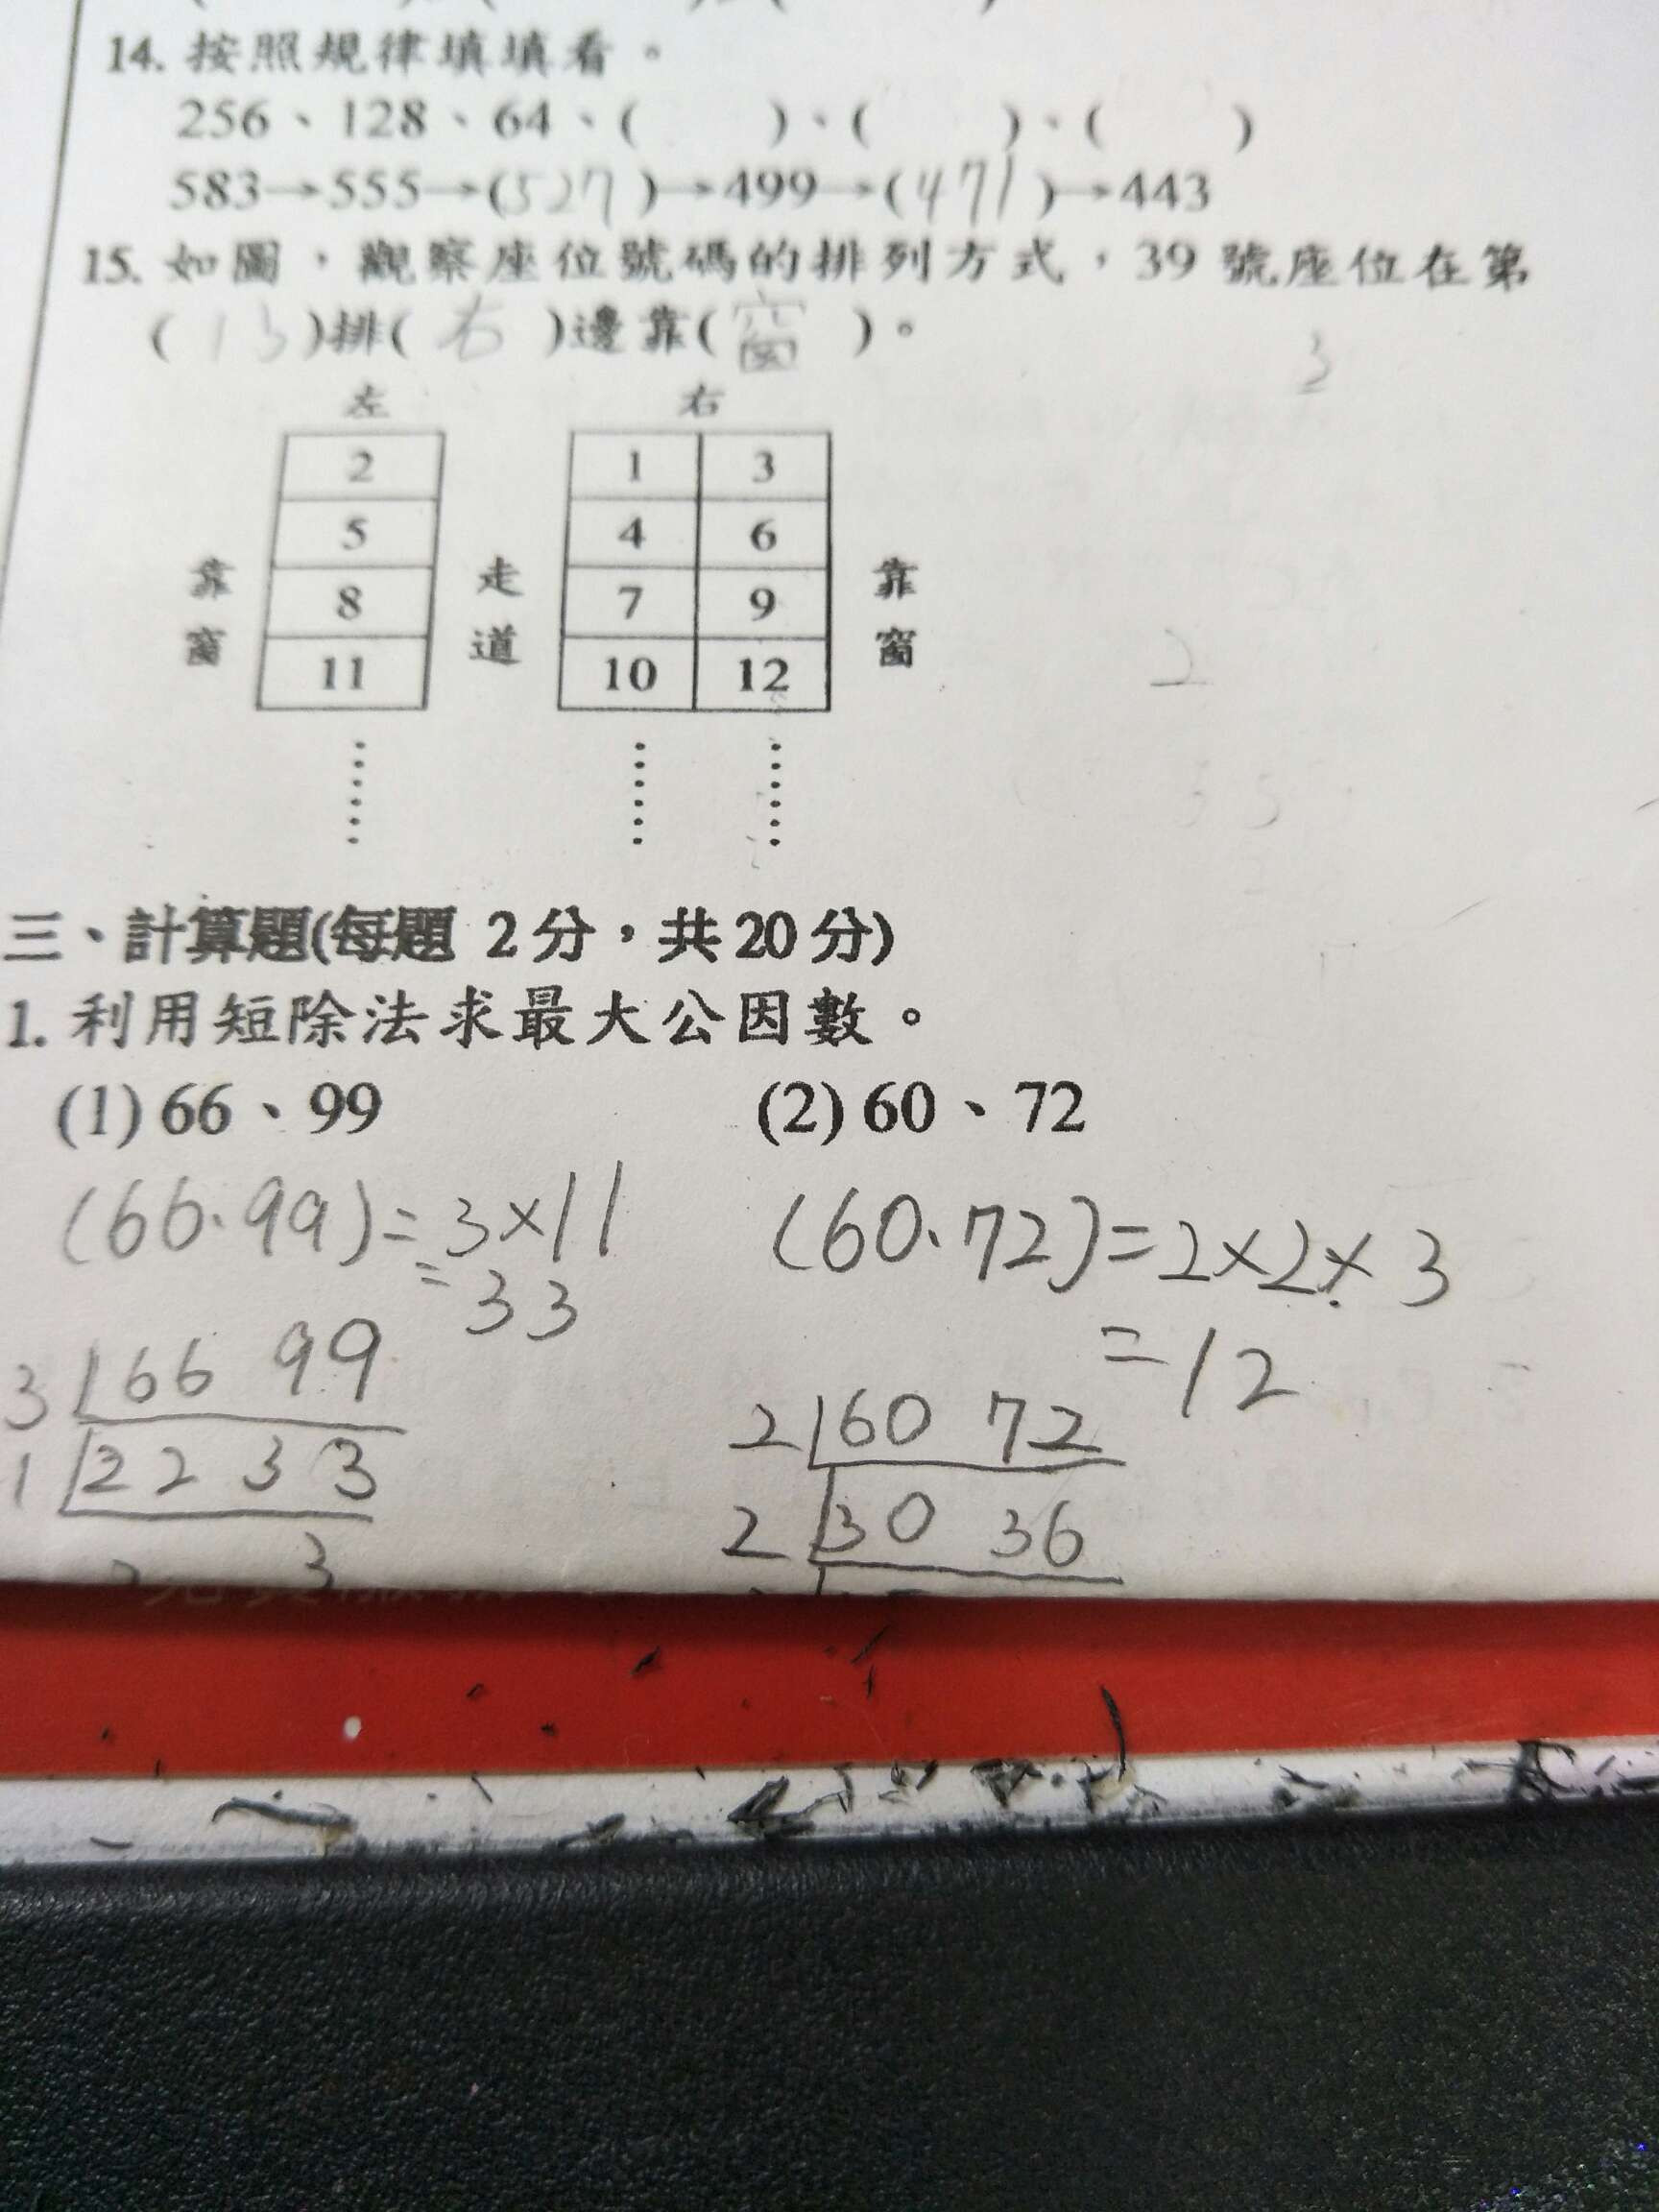 14. 按照規律填填看。
256、128、64、( )、( )、( )
583→555→(527)→499→(471)→443
15. 如圖,觀察座位號碼的排列方式,39 號座位在第
(13)排(右)邊靠(窗)。
3
左 右
2 1 3
5 4 6
靠 走 靠
8 7 9
窗 道 窗
2
11 10 12
三、計算題(每題 2分,共20分)
1. 利用短除法求最大公因數。
(1) 66、99 (2) 60、72
(66.99)=3×11 (60、72)=2×2×3
=33
=12
3 66 99
2 60 72
1 22 33
2 30 36
3